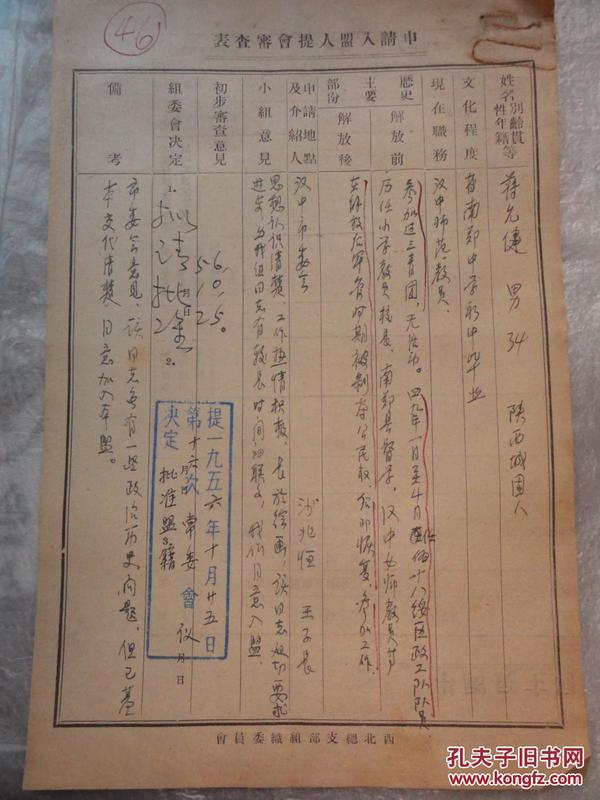 46
申請入盟人提會審查表
姓名 性別 年齡 籍貫等
蒋允健 男 34 陕西城固人
文化程度
省南郑中学初中毕业
現在職務
汉中师范教员
歷史主要部份
解放前
参加过三青团,无活动。四九年一月至4月任伪十八绥区政工队队员
历任小学教员校长、南郑县督学、汉中女师教员等
解放後
军管时期被剥夺公民权,公即恢复,参加工作。
申請地點及介紹人
汉中市委会 王子长
小組意見
思想认识清楚、工作热情积极、长於绘画,该同志迫切要求
进步,与我组同志有较长时间的联系,我们同意入盟。
初步審查意見
56.10.25。
組委會决定
1. 拟请批准
2.
3.
月 日
提一九五六年十月廿五日
第十六次常委會议
决定 批准盟籍
備考
市委会意见:该同志虽有一些政治历史问题,但已基
本交代清楚,同意加入本盟。
西北總支部組織委員會
孔夫子旧书网
www.kongfz.com